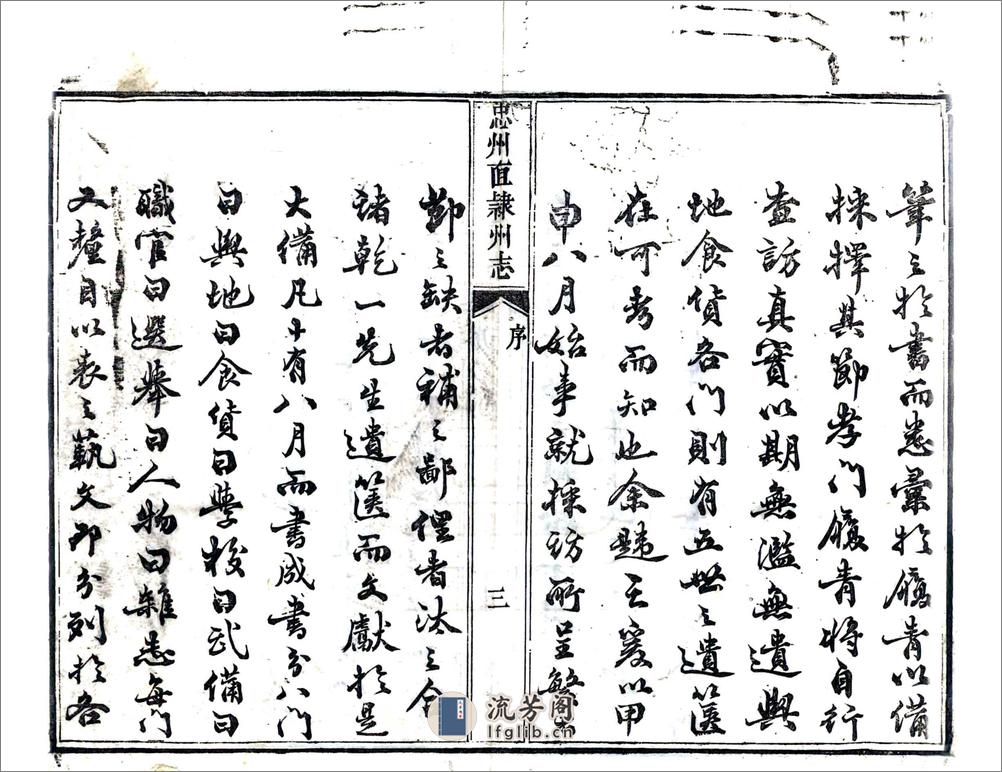 筆之於書而悉彙於鴈青以備
採擇其節孝門鴈青將自行
查訪真實以期無濫無遺輿
地食貨各門則有五世之遺篋
在可考而知也余韙之爰以甲
申八月始事就採訪所呈繁者
忠州直隸州志
序
三
節之缺者補之鄙俚者汰之合
諸乾一先生遺篋而文獻於是
大備凡十有八月而書成書分八門
曰輿地曰食貨曰學校曰武備曰
職官曰選舉曰人物曰雜志每門
又釐目以表之藝文即分列於各
流芳阁
lfglib.cn